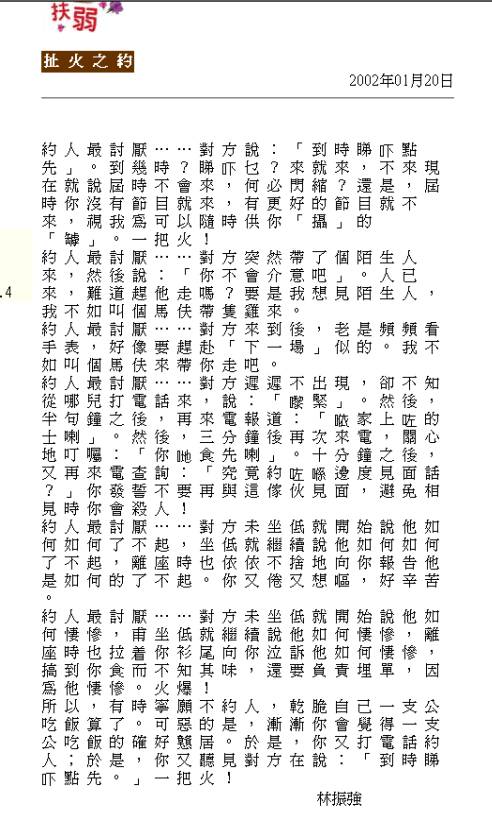 扶弱
扯火之約
2002年01月20日
約人最討厭……對方說：「到時睇吓點
先」。到幾時？睇吓乜？來就來，不來現
在就說屆時不會來，何必閃縮？還是，屆
時你沒有節目就來，有更好的節目就不
來，視我爲可以隨時供你「攝」的
「罅」。一把火！
約人最討厭……對方突然帶了個陌生人
來，然後說：「你不會介意吧」。人已
來，難道趕他走嗎？要是我想見陌生人，
.4
我不如叫個馬伕帶隻雞來。
約人最討厭……對方來到後，老是頻頻看
手表，好像要趕赴「下一場」似的。我不
如叫個馬伕來帶你走吧。
約人最討厭……對方遲遲不出現，卻不知
從哪兒打電話來，說：「嚟緊」。然後，
半句鐘之後，再來電報道：「𠵱家上咗的
士喇」。然後，三分鐘後再次來電，關心
地叮囑：「你哋食先喇」。十分鐘之後，
又再來電查詢：「究竟約咗喺邊度見面話
？」你發誓不要再與這傢伙見面，避免相
見時你會殺人！
約人最討厭……對方未坐低就開始說他如
何如何了不起，坐低就繼續說他如何如何
了不起，離座時也依依不捨地向你報告他
是如何的了不起。你又倦又想嘔，好辛苦
。
約人最討厭……對方未坐低就開始說他如
何悽慘，甫坐低就繼續說他如何悽慘，離
座時也拉着你衫尾向你泣訴他如何悽慘，
搞到你食而不知其味，還要負責埋單，因
爲他悽慘。火爆！
所以，有時寧願不約人，乾脆自己一支公
吃飯算了。可惡的是，漸漸你會覺得一支
公吃飯的確好戇居。於是，你又打電話約
人；於是，你又聽見對方在說：「到時睇
吓點先。」一把火！
林振強